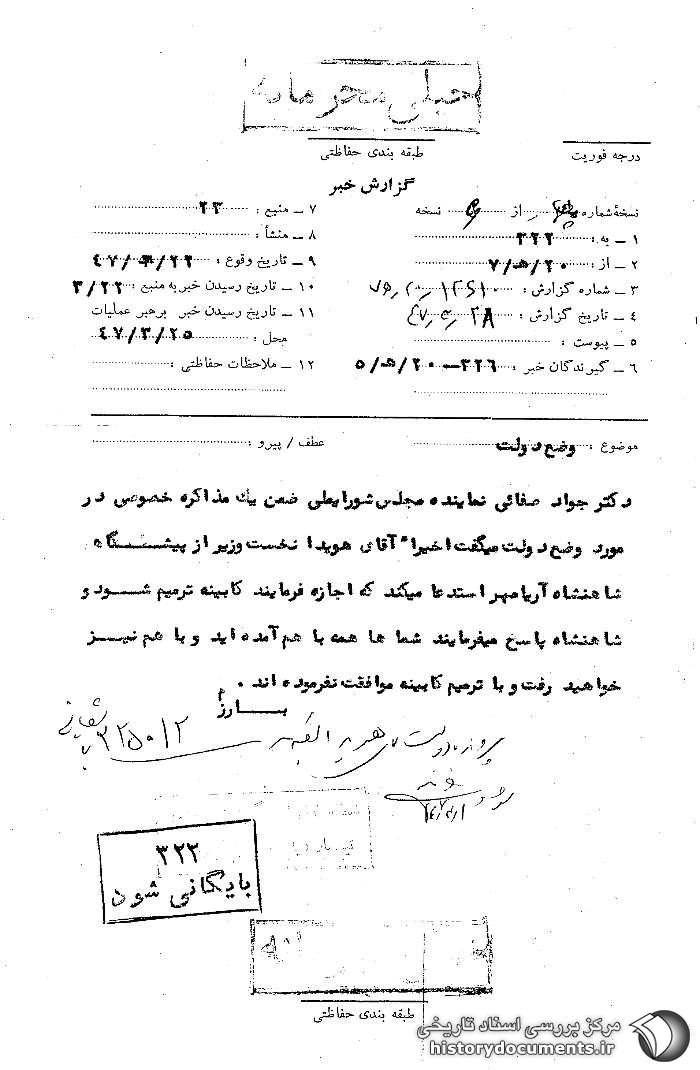 خیلی محرمانه
طبقه بندی حفاظتی
درجه فوریت
گزارش خبر
نسخهٔ شماره از نسخه
۱ ـ به : ۳۲۲
۲ ـ از : ۲۰/ه/۷
۳ ـ شماره گزارش :
۴ ـ تاریخ گزارش : ۲۸
۵ ـ پیوست :
۶ ـ گیرندگان خبر : ۳۲۶ ـ ۲۰/ه/۵
۷ ـ منبع : ۲۳
۸ ـ منشأ :
۹ ـ تاریخ وقوع : ۴۷/۳/۲۲
۱۰ ـ تاریخ رسیدن خبر به منبع : ۳/۲۲
۱۱ ـ تاریخ رسیدن خبر برهبر عملیات
محل : ۴۷/۳/۲۵
۱۲ ـ ملاحظات حفاظتی :
موضوع : وضع دولت
عطف / پیرو :
دکتر جواد صفائی نماینده مجلس شورایملی ضمن یك مذاکره خصوصی در
مورد وضع دولت میگفت اخیرا" آقای هویدا نخست وزیر از پیشگاه
شاهنشاه آریامهر استدعا میکند که اجازه فرمایند کابینه ترمیم شود و
شاهنشاه پاسخ میفرمایند شما ها همه با هم آمده اید و با هم نیز
خواهید رفت و با ترمیم کابینه موافقت نفرموده اند .
بارز
۳۲۵۰۱۲
۳۲۲
بایگانی شود
طبقه بندی حفاظتی
مرکز بررسی اسناد تاریخی
historydocuments.ir